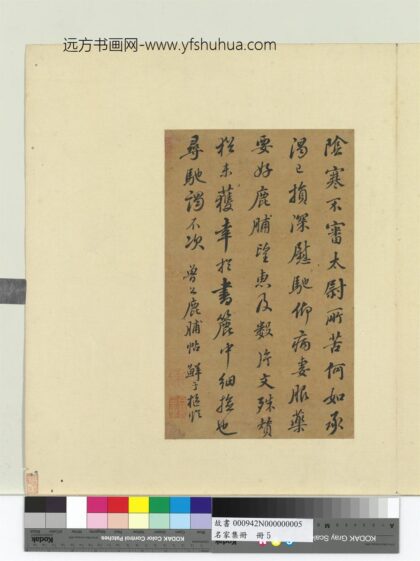 远方书画网-www.yfshuhua.com
陰寒不審太尉所苦何如承
渴已損深慰馳仰病妻服藥
要好鹿脯望惠及數片文殊
猶未獲幸於書簏中細撿也
尋馳謁不次 魯公鹿脯帖 鮮于樞臨
故書 000942N000000005
名家集冊 冊 5
KODAK Color Control Patches
KODAK Gray Scale